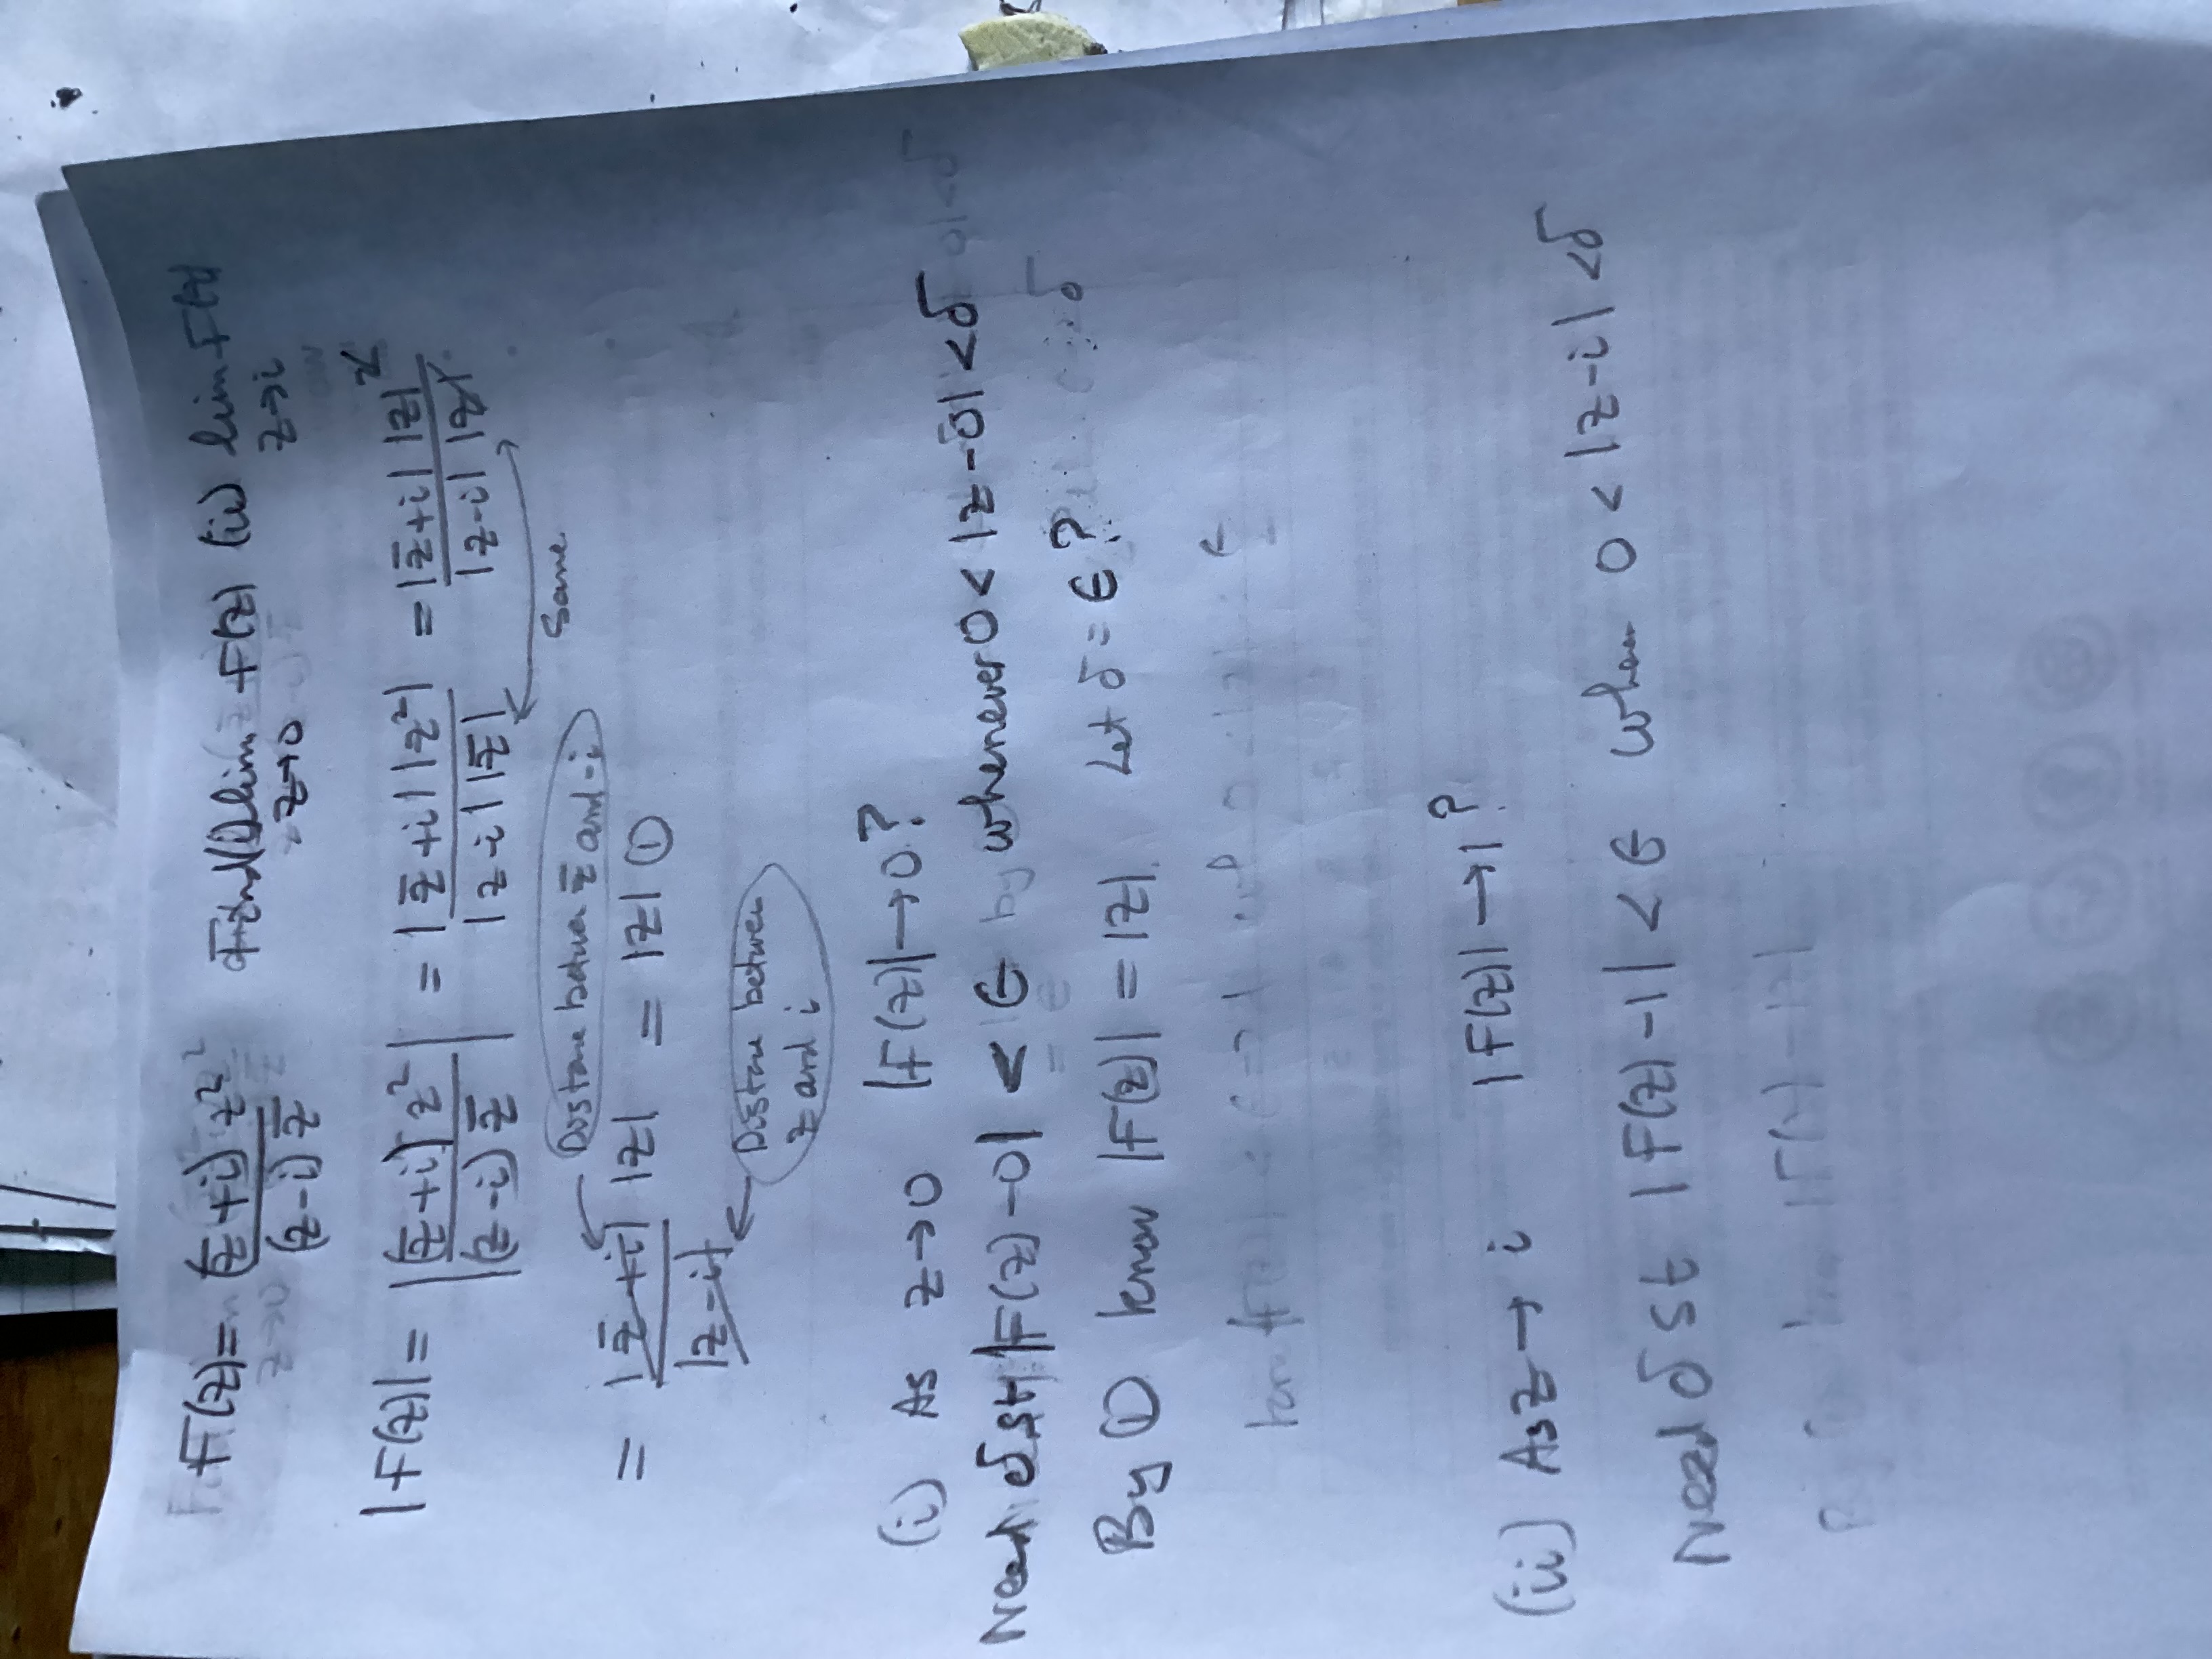 F(z) = (z̄+i) z² / (z-i) z̄ Find (i) lim F(z) z→0 (ii) lim F(z) z→i
|F(z)| = |(z̄+i) z² / (z-i) z̄| = |z̄+i| |z²| / |z-i| |z̄| = |z̄+i| |z|² / |z-i| |z|
Same
Distance between z̄ and -i
= |z̄+i| / |z-i| |z| = |z| ①
Distance between
z and i
(i) As z→0 |F(z)|→0?
Need δ st |F(z)-0| < ϵ whenever 0 < |z-0| < δ
By ① know |F(z)| = |z| Let δ = ϵ?
(ii) As z→i |F(z)|→1?
Need δ st |F(z)-1| < ϵ when 0 < |z-i| < δ